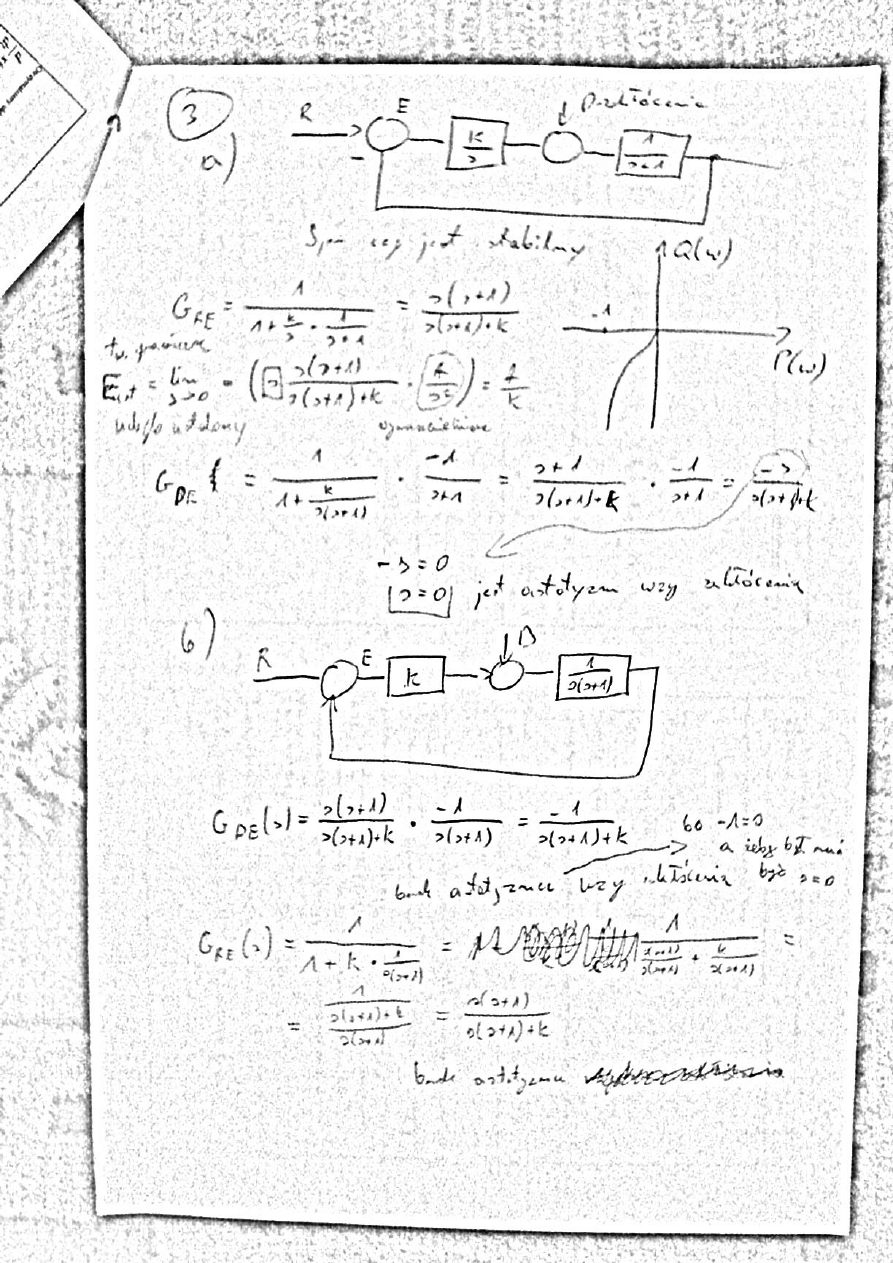 3
a)
R E Dzakłócenie
k/s 1/(s+1)
-
Spr czy jest stabilny
Q(ω)
-1
P(ω)
G_RE = 1/(1+k/s · 1/(s+1)) = s(s+1)/(s(s+1)+k)
tw. graniczne
E_ust = lim s→0 = (s s(s+1)/(s(s+1)+k) · A/s²) = A/k
uchyb ustalony wymuszenie
G_DE = 1/(1+k/(s(s+1))) · -1/(s+1) = s(s+1)/(s(s+1)+k) · -1/(s+1) = -s/(s(s+1)+k)
-s=0
s=0 jest astatyzm wzg zakłócenia
b)
R E D
k 1/(s(s+1))
G_DE(s) = s(s+1)/(s(s+1)+k) · -1/(s(s+1)) = -1/(s(s+1)+k)
bo -1=0
a żeby był musi
być s=0
brak astatyzmu wzg zakłócenia
G_RE(s) = 1/(1+k · 1/(s(s+1))) = 1/(s(s+1)/(s(s+1)) + k/(s(s+1))) =
= 1/((s(s+1)+k)/(s(s+1))) = s(s+1)/(s(s+1)+k)
brak astatyzmu